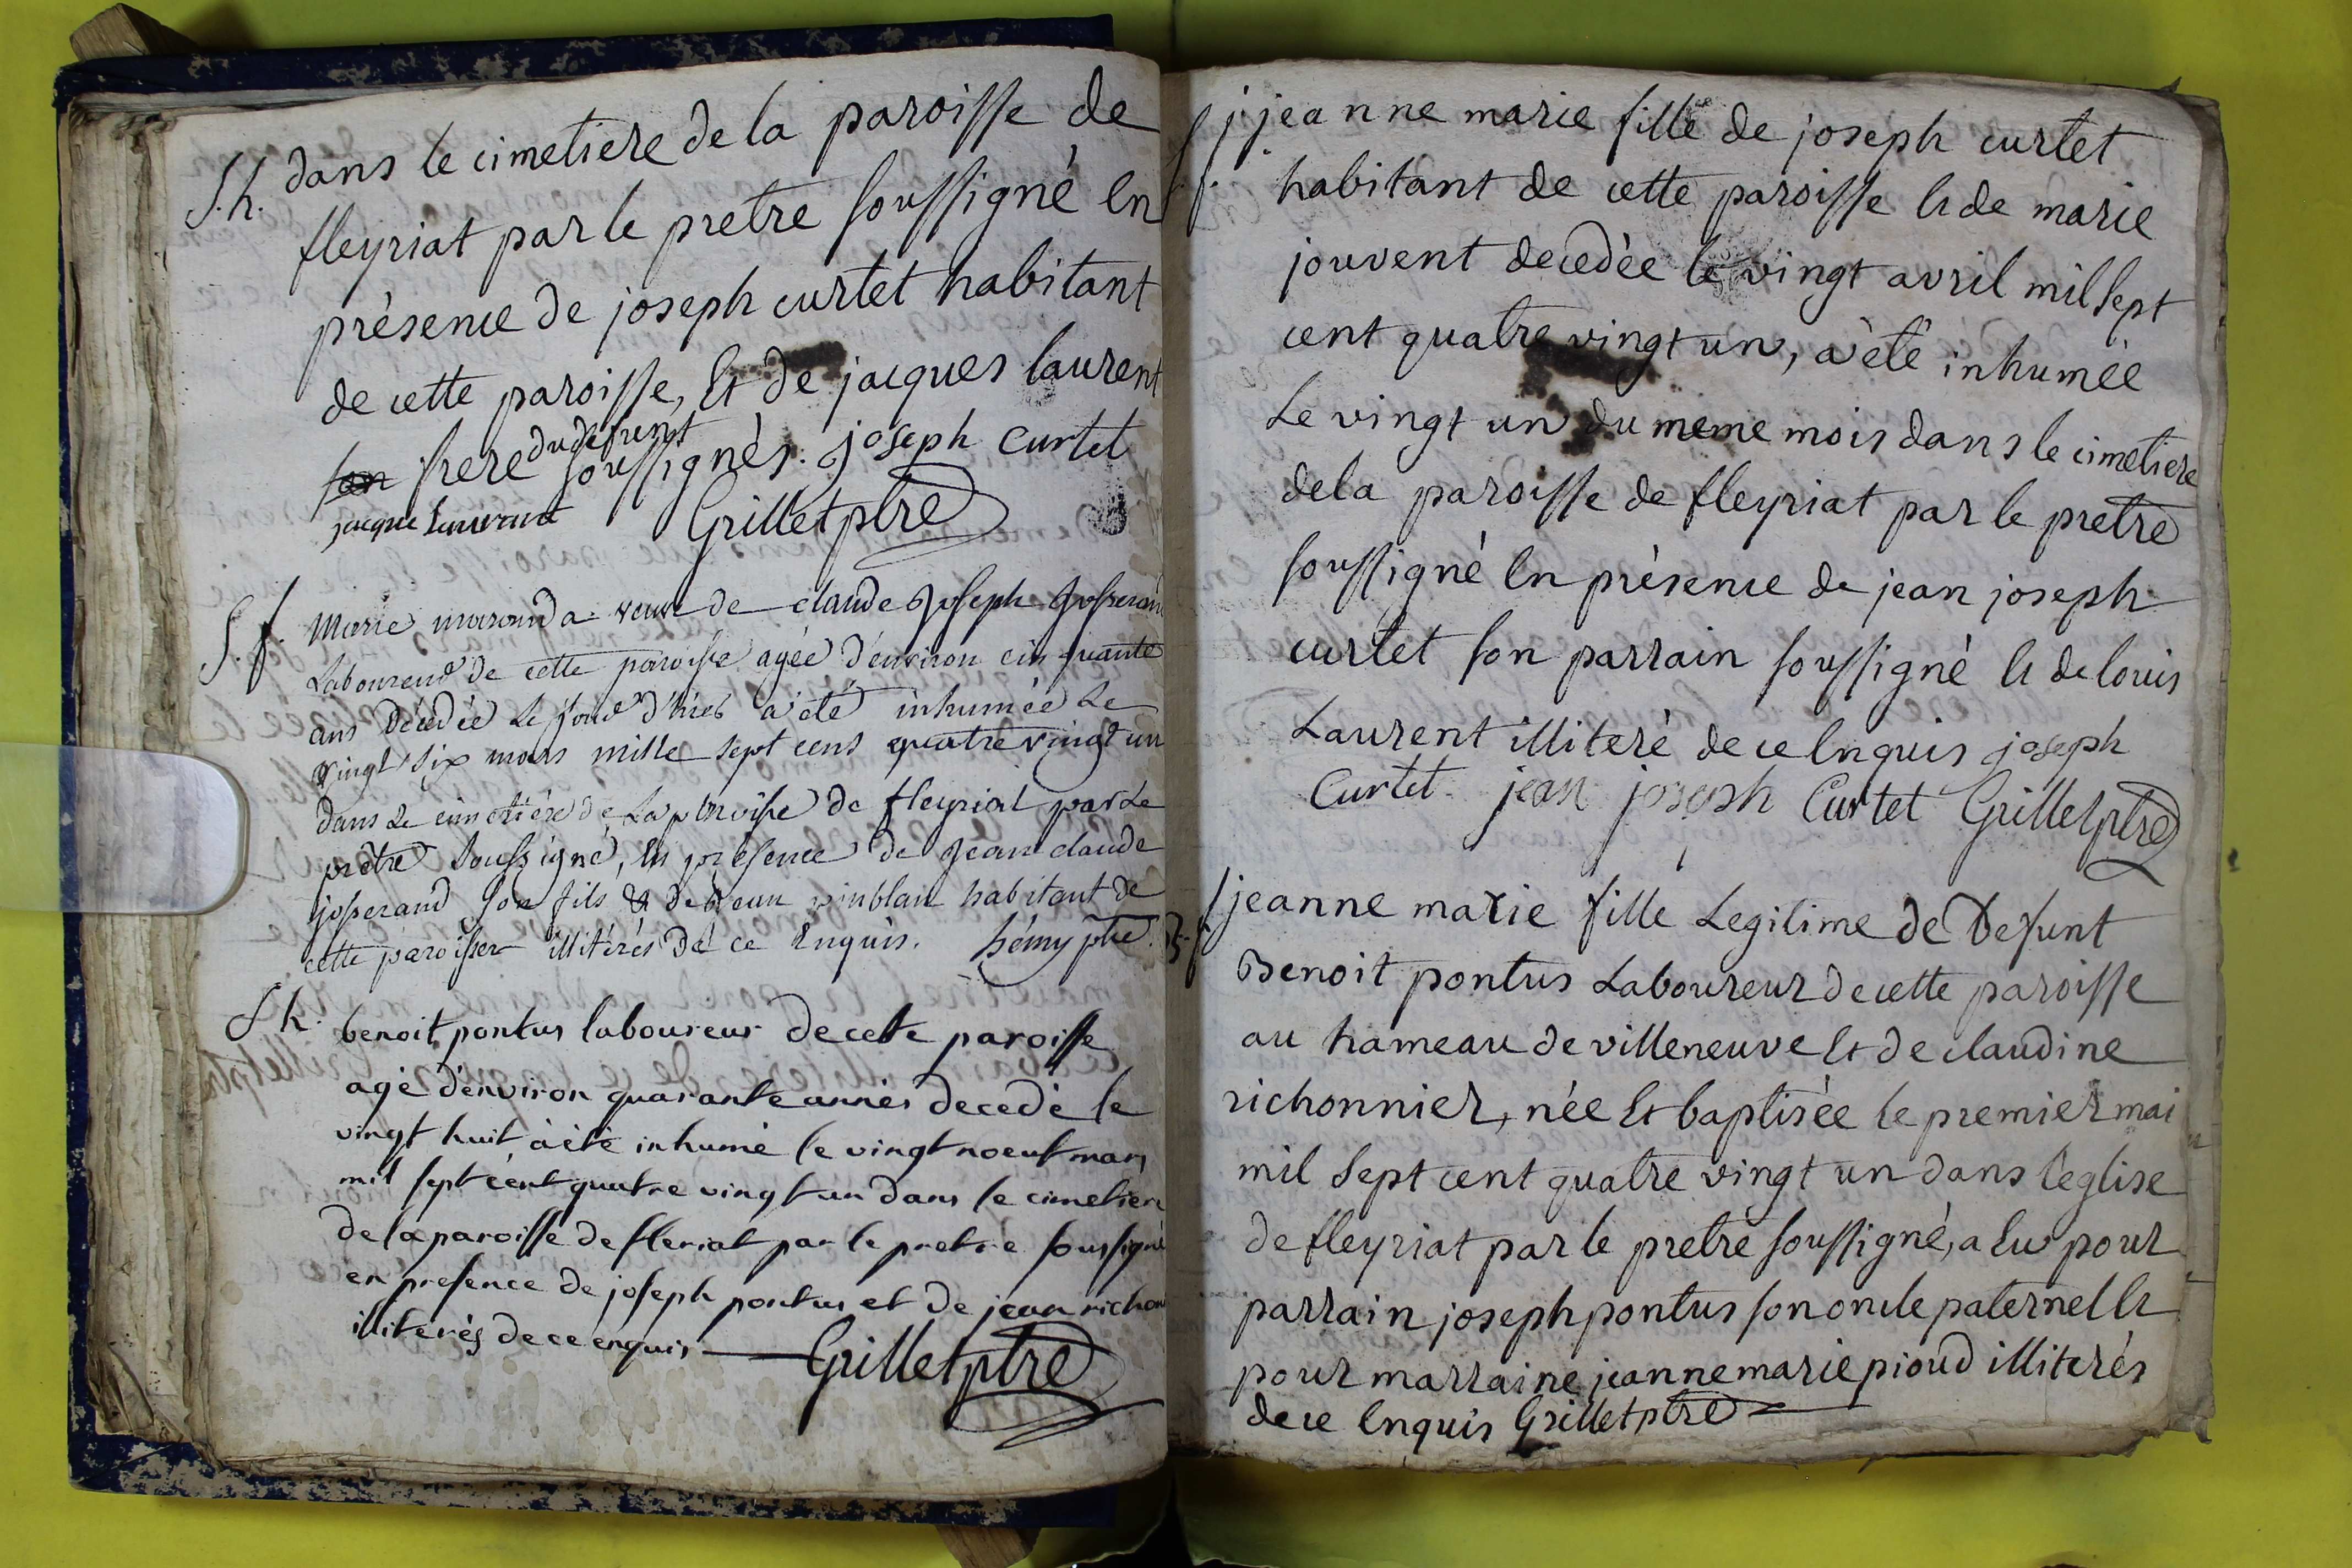 S.h. dans le cimetiere de la paroisse de
fleyriat par le pretre soussigné en
présence de joseph curtet habitant
de cette paroisse, et de jacques laurent
son frere du defunt soussignés. joseph Curtet
jacque laurent Grillet ptre
S.f. Marie maranda veuve de claude joseph josserand
Laboureur de cette paroisse agée d'environ cinquante
ans décédée le jour d'hier a été inhumée le
vingt six mars mille sept cens quatre vingt un
dans le cimetière de la paroisse de fleyriat par le
prêtre soussigné, en présence de jean claude
josserand son fils & de jean habitant de
cette paroisse illitérés de ce enquis. hémy ptre.
S h. benoit pontus laboureur de cette paroisse
agé d'environ quarante années decedé le
vingt huit à été inhumé le vingt noeuf mars
mil sept cent quatre vingt un dans le cimetiere
de la paroisse de fleriat par le pretre soussigné
en presence de joseph pontus et de jean richon
illiterés de ce enquis Grillet ptre
jeanne marie fille de joseph curtet
habitant de cette paroisse et de marie
jouvent decedée le vingt avril mil sept
cent quatre vingt un, à été inhumée
Le vingt un du meme mois dans le cimetiere
de la paroisse de fleyriat par le pretre
soussigné en présence de jean joseph
curtet son parrain soussigné et de louis
Laurent illiteré de ce enquis joseph
Curtet jean joseph Curtet Grillet ptre
jeanne marie fille Legitime de Defunt
Benoit pontus Laboureur de cette paroisse
au hameau de villeneuve et de claudine
richonnier, née et baptisée le premier mai
mil sept cent quatre vingt un dans l'eglise
de fleyriat par le pretre soussigné, a eu pour
parrain joseph pontus son oncle paternel et
pour marraine jeanne marie pioud illiterés
de ce enquis Grillet ptre